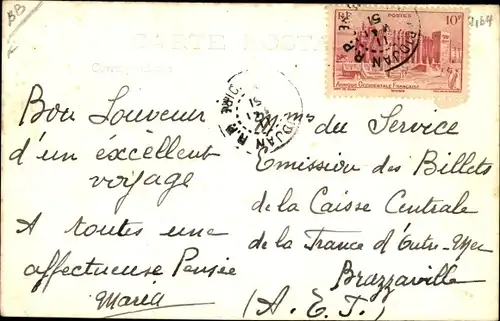 BB
CARTE POSTALE
Bon Souvenir
d'un éxcéllent
voyage
A toutes une
affectueuse Pensée
Maria
POSTES
10F
Afrique Occidentale Française
R.P.
ABIDJAN
Mms du Service
Emission des Billets
de la Caisse Centrale
de la France d'Outre-Mer
Brazzaville
(A. E. F.)